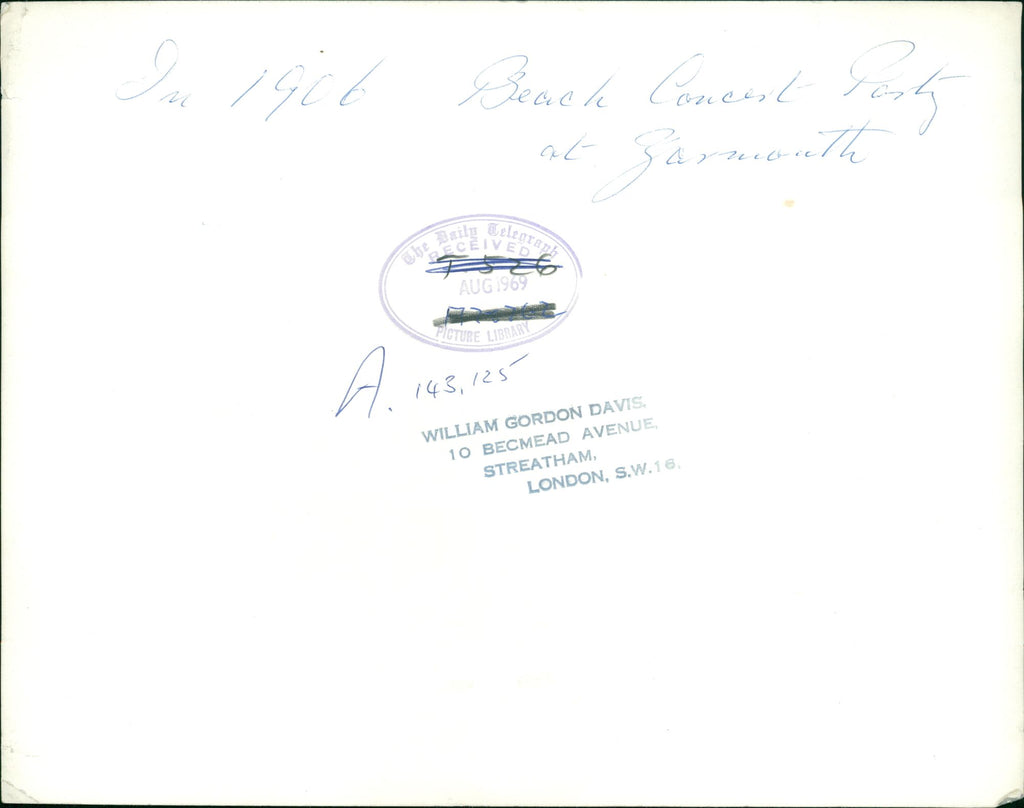 In 1906 Beach Concert Party
at Yarmouth
The Daily Telegraph
RECEIVED
T. 526
AUG 1969
PICTURE LIBRARY
A. 143,125
WILLIAM GORDON DAVIS.
10 BECMEAD AVENUE,
STREATHAM,
LONDON, S.W.16.